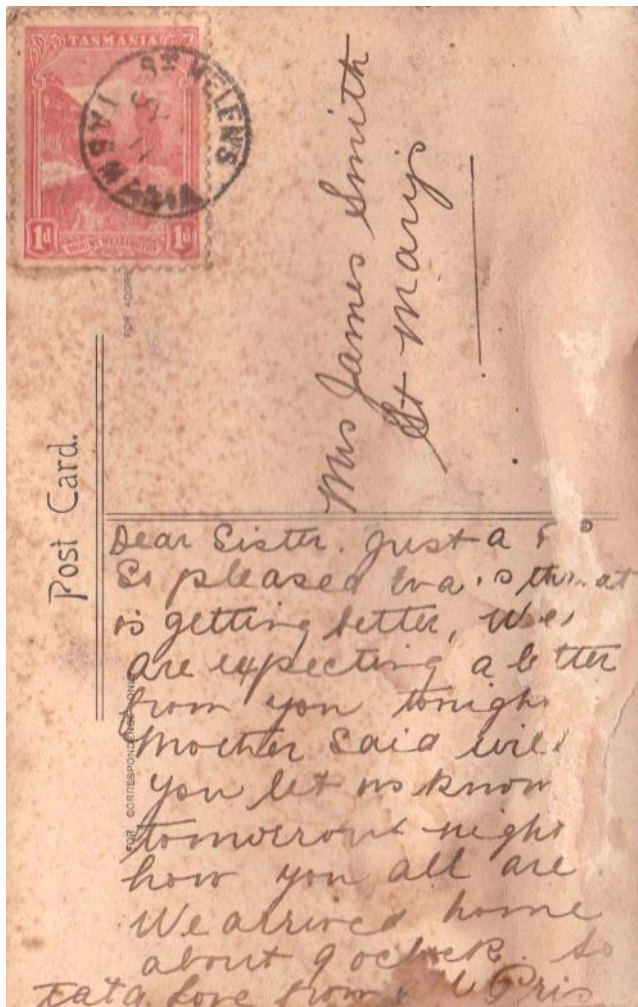 TASMANIA
ST HELENS
TASMANIA
1d
MOUNT WELLINGTON
1d
Post Card.
FOR CORRESPONDENCE ONLY
Mrs James Smith
St Marys
Dear Sister. Just a
So pleased Eva's throat
is getting better, We
are expecting a letter
from you tonight
Mother said will
you let us know
tomorrow night
how you all are
We arrived home
about 9 oclock. So
tata love from all Pris